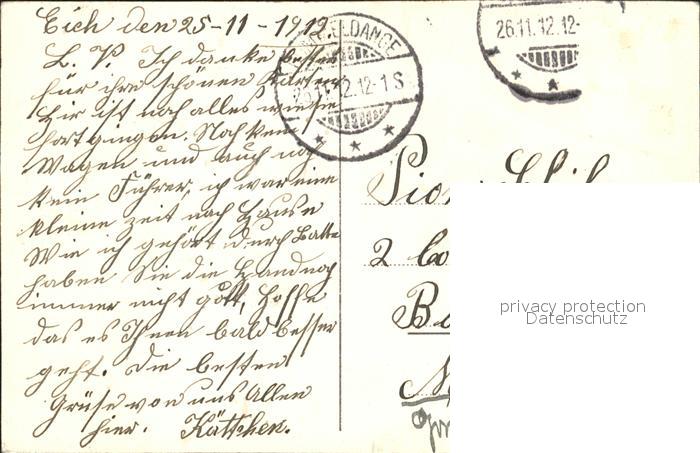 Eich den 25-11-1912
L. P. Ich danke besten
für ihre schönen Karten
hir ist noch alles wie sie
fortgingen. Noch kein
Wagen und auch noch
kein Führer, ich war eine
kleine zeit nach Hause
Wie ich gehört durch
haben Sie die Hand noch
immer nicht gott, Hoffe
das es Ihnen bald besser
geht. Die besten
Grüse von uns Allen
hier. Kättchen.
ELDANGE
26.11.12.12-1 S
26.11.12.12-
Pio
2
privacy protection
Datenschutz